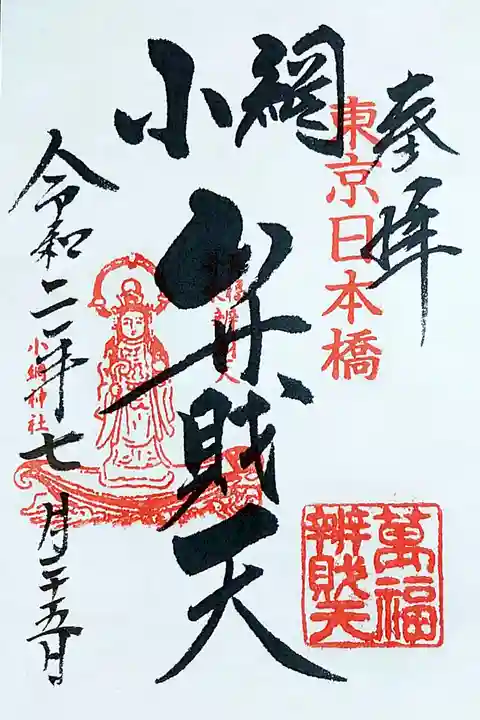 奉拝
東京日本橋
小網
弁財天
萬福
辨戝天
小網神社
令和二年七月二十五日